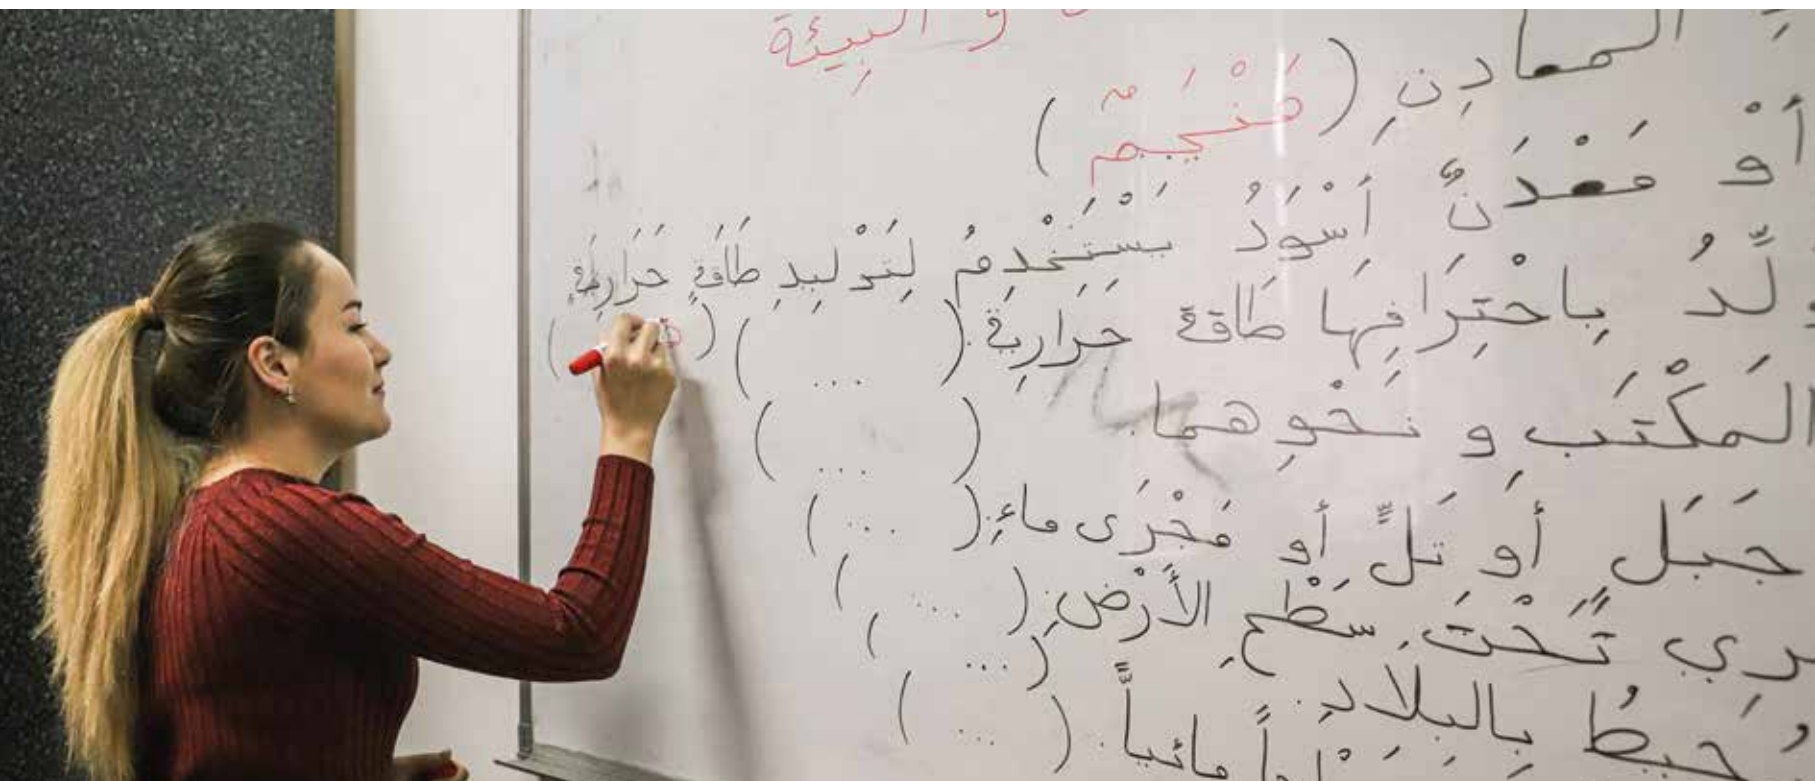 و البِيئَة
المعادِنِ (مَنْجَمٌ)
أَوْ مَعْدَنٌ أَسْوَدُ يَسْتَخْدِمُ لِتَوْلِيدِ طَاقَةٍ حَرارِيَّةٍ
بِاحْتِرَاقِهَا طَاقَةٌ حَرَارِيَةٌ. ( ... ) (
المَكْتَبِ و نَحْوِهما. ( ... )
جَبَلٍ أَو تَلٍّ أو مَجْرَى ماءٍ. ( ... )
تَحْتَ سَطْحِ الأَرْضِ. ( ... )
بِالبِلاَدِ. ( ... )
مائياًّ. ( ... )